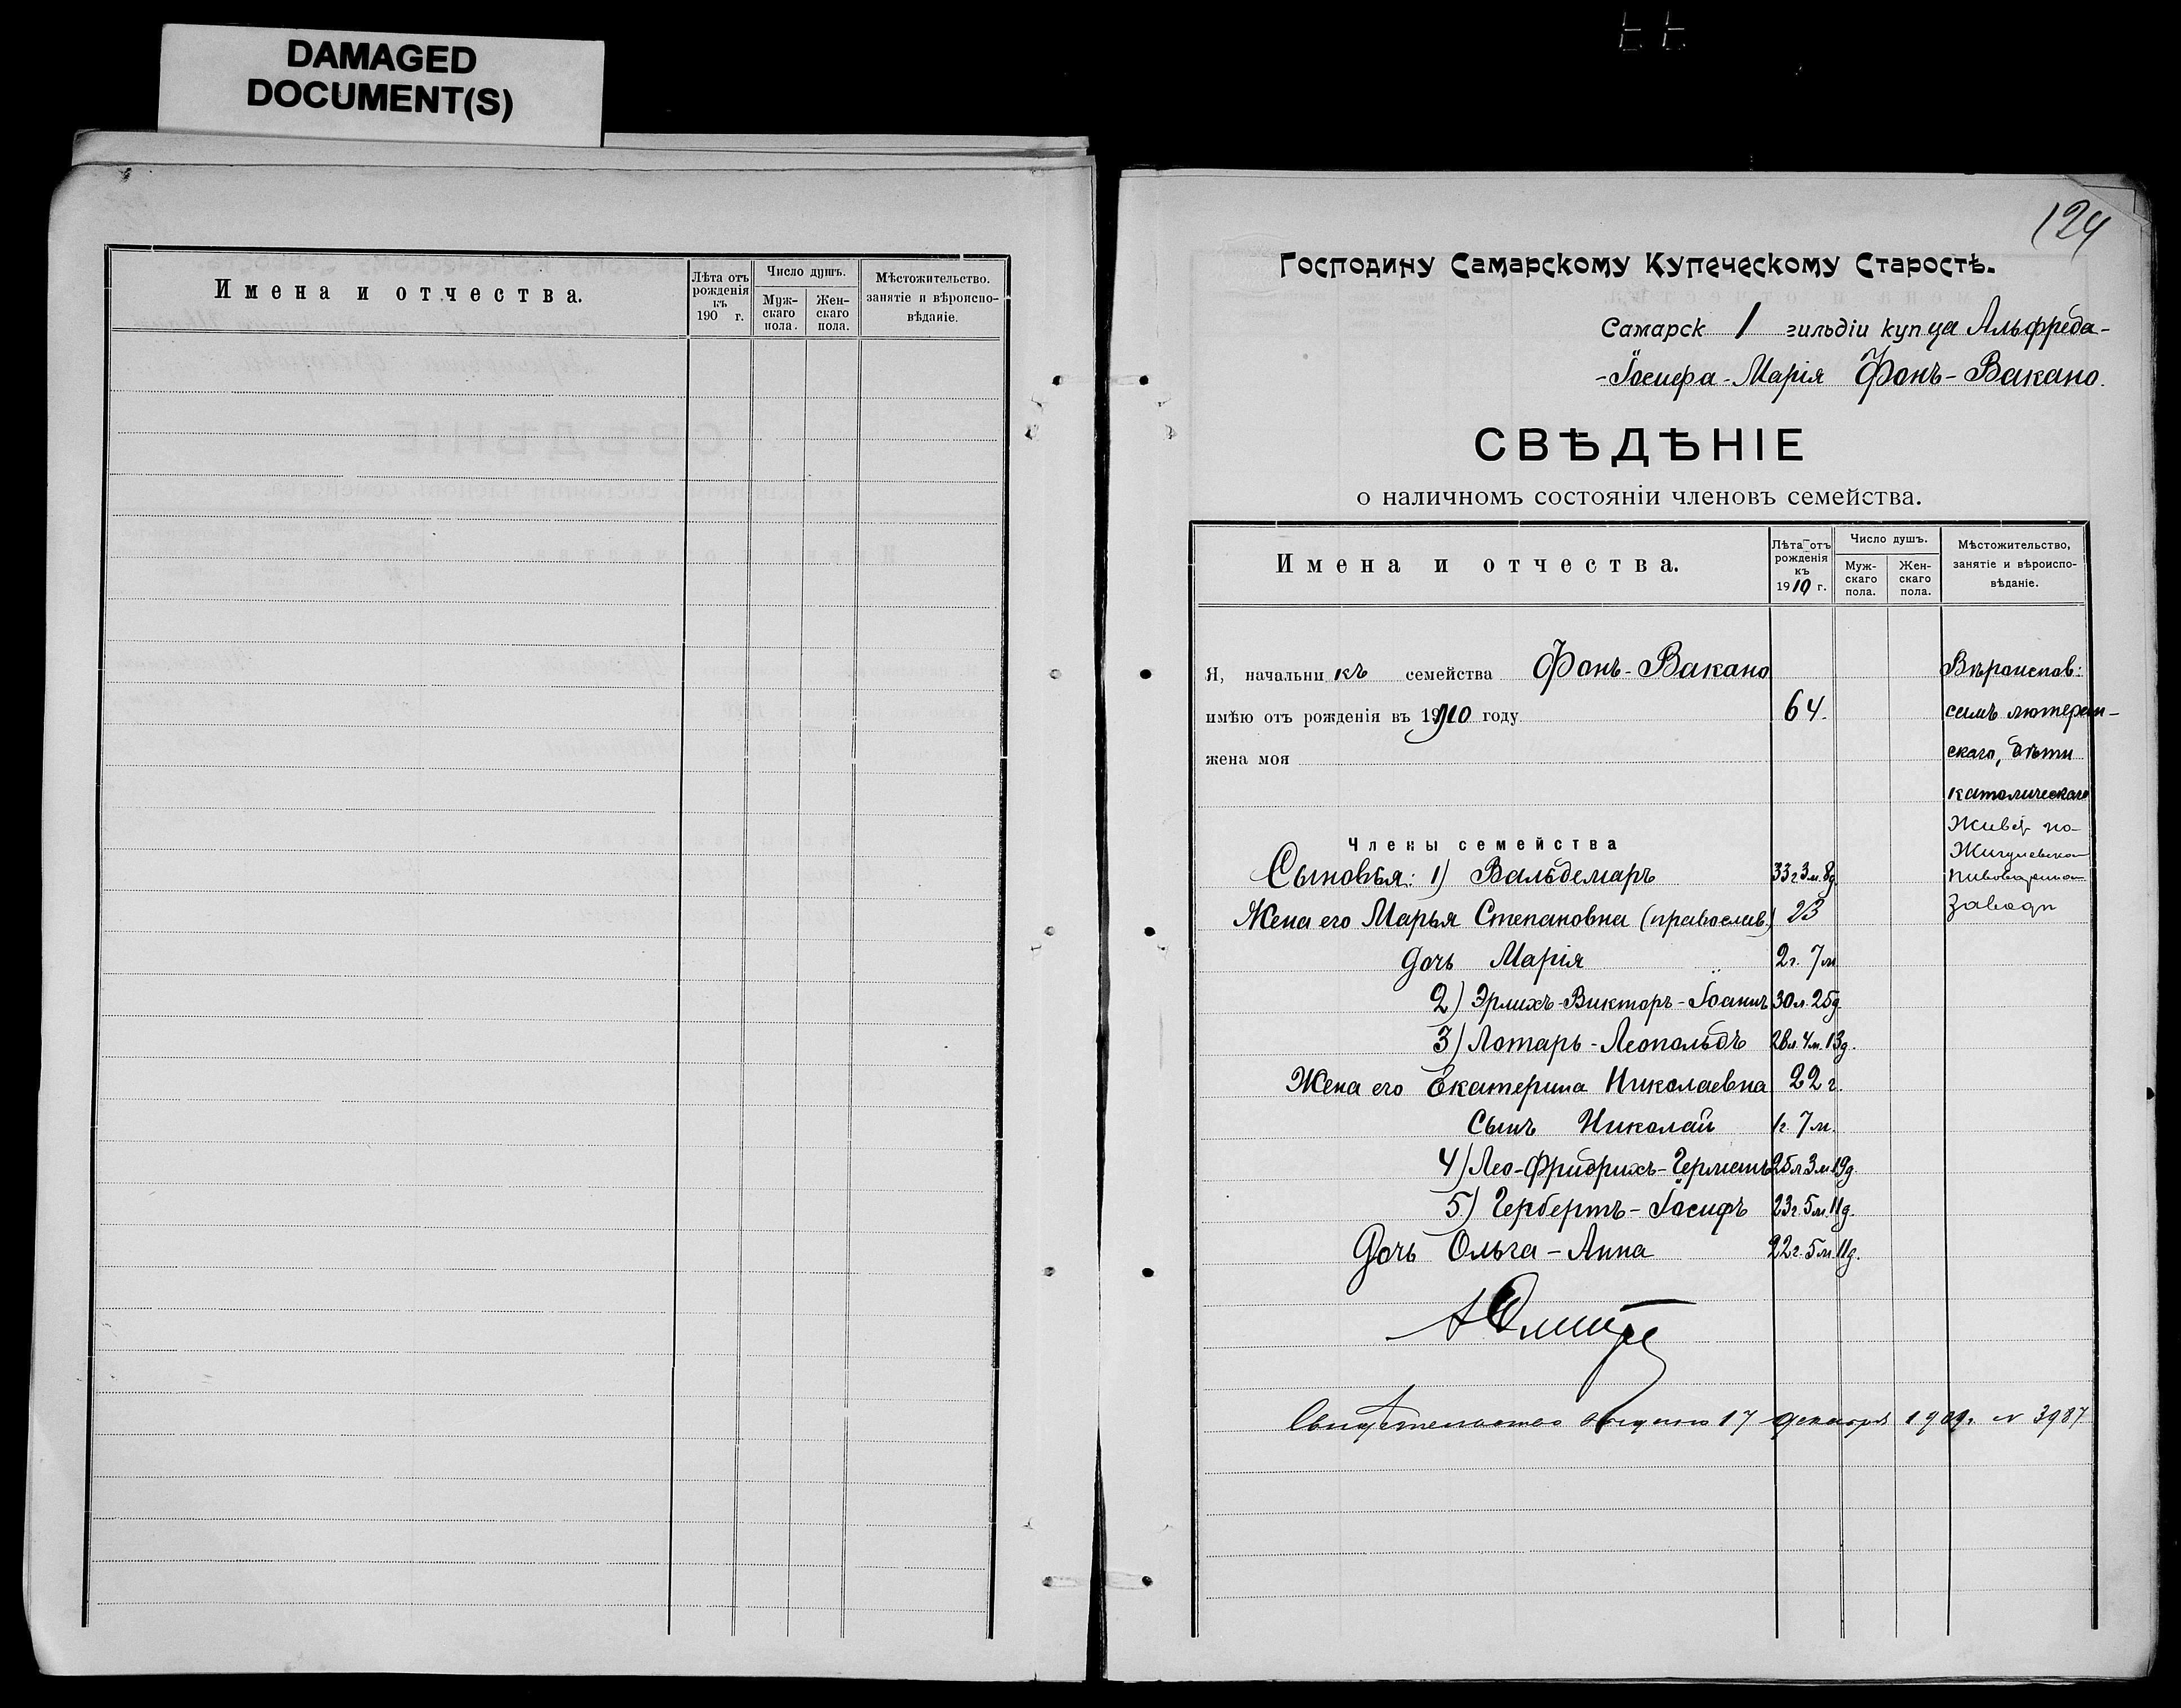 DAMAGED
DOCUMENT(S)
Имена и отчества.
Лѣта отъ
рожденія
къ
190 г.
Число душъ.
Муж-
скаго
пола.
Жен-
скаго
пола.
Мѣстожительство.
занятіе и вѣроиспо-
вѣданіе.
124
Господину Самарскому Купеческому Старостѣ.
Самарск 1 гильдіи купца Альфреда-
-Іосифа-Марія Фонъ-Вакано.
СВѢДѢНІЕ
о наличномъ состояніи членовъ семейства.
Имена и отчества.
Лѣта отъ
рожденія
къ
1910 г.
Число душъ.
Муж-
скаго
пола.
Жен-
скаго
пола.
Мѣстожительство,
занятіе и вѣроиспо-
вѣданіе.
Я, начальникъ семейства Фонъ-Вакано
имѣю отъ рожденія въ 1910 году 64.
жена моя
Вѣроиспов:
самъ лютеран-
скаго, дѣти
католическаго
Живет по-
Жигулевском
пивоваренном
заводѣ
Члены семейства
Сыновья: 1) Вальдемаръ 33г 3м. 8д.
Жена его Марья Степановна (православ.) 23
дочь Марія 2г. 7м
2) Эрлихъ-Викторъ-Іоаннъ 30л. 25д.
3) Лотарь-Леопольдъ 28л. 4м. 13д.
Жена его Екатерина Николаевна 22 г.
Сынъ Николай 1г. 7м.
4) Лео-Фридрихъ-Германъ 25л 3м 19д.
5) Гербертъ-Іосифъ 23г. 5м. 11д.
Дочь Ольга-Анна 22г. 5м. 11д.
Свидетельство выдано 17 декабря 1909г. N 3987